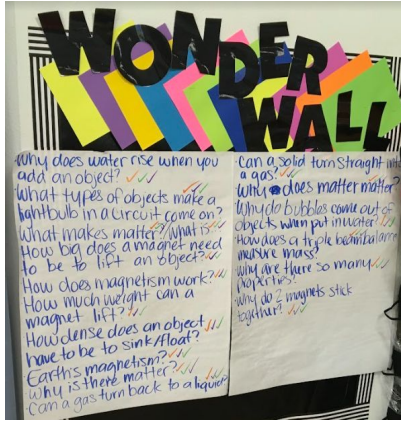 WONDER
WALL
·Why does water rise when you
add an object?
·What types of objects make a
lightbulb in a circuit come on?
What makes matter?/What is
How big does a magnet need
to be to lift an object?
How does magnetism work?
How much weight can a
magnet lift?
How dense does an object
have to be to sink/float?
Earth's magnetism?
Why is there matter?
·Can a gas turn back to a liquid?
·Can a solid turn straight into
a gas?
Why does matter matter?
Why do bubbles come out of
objects when put in water
·How does a triple beam balance
measure mass?
Why are there so many
properties?
·Why do 2 magnets stick
together?